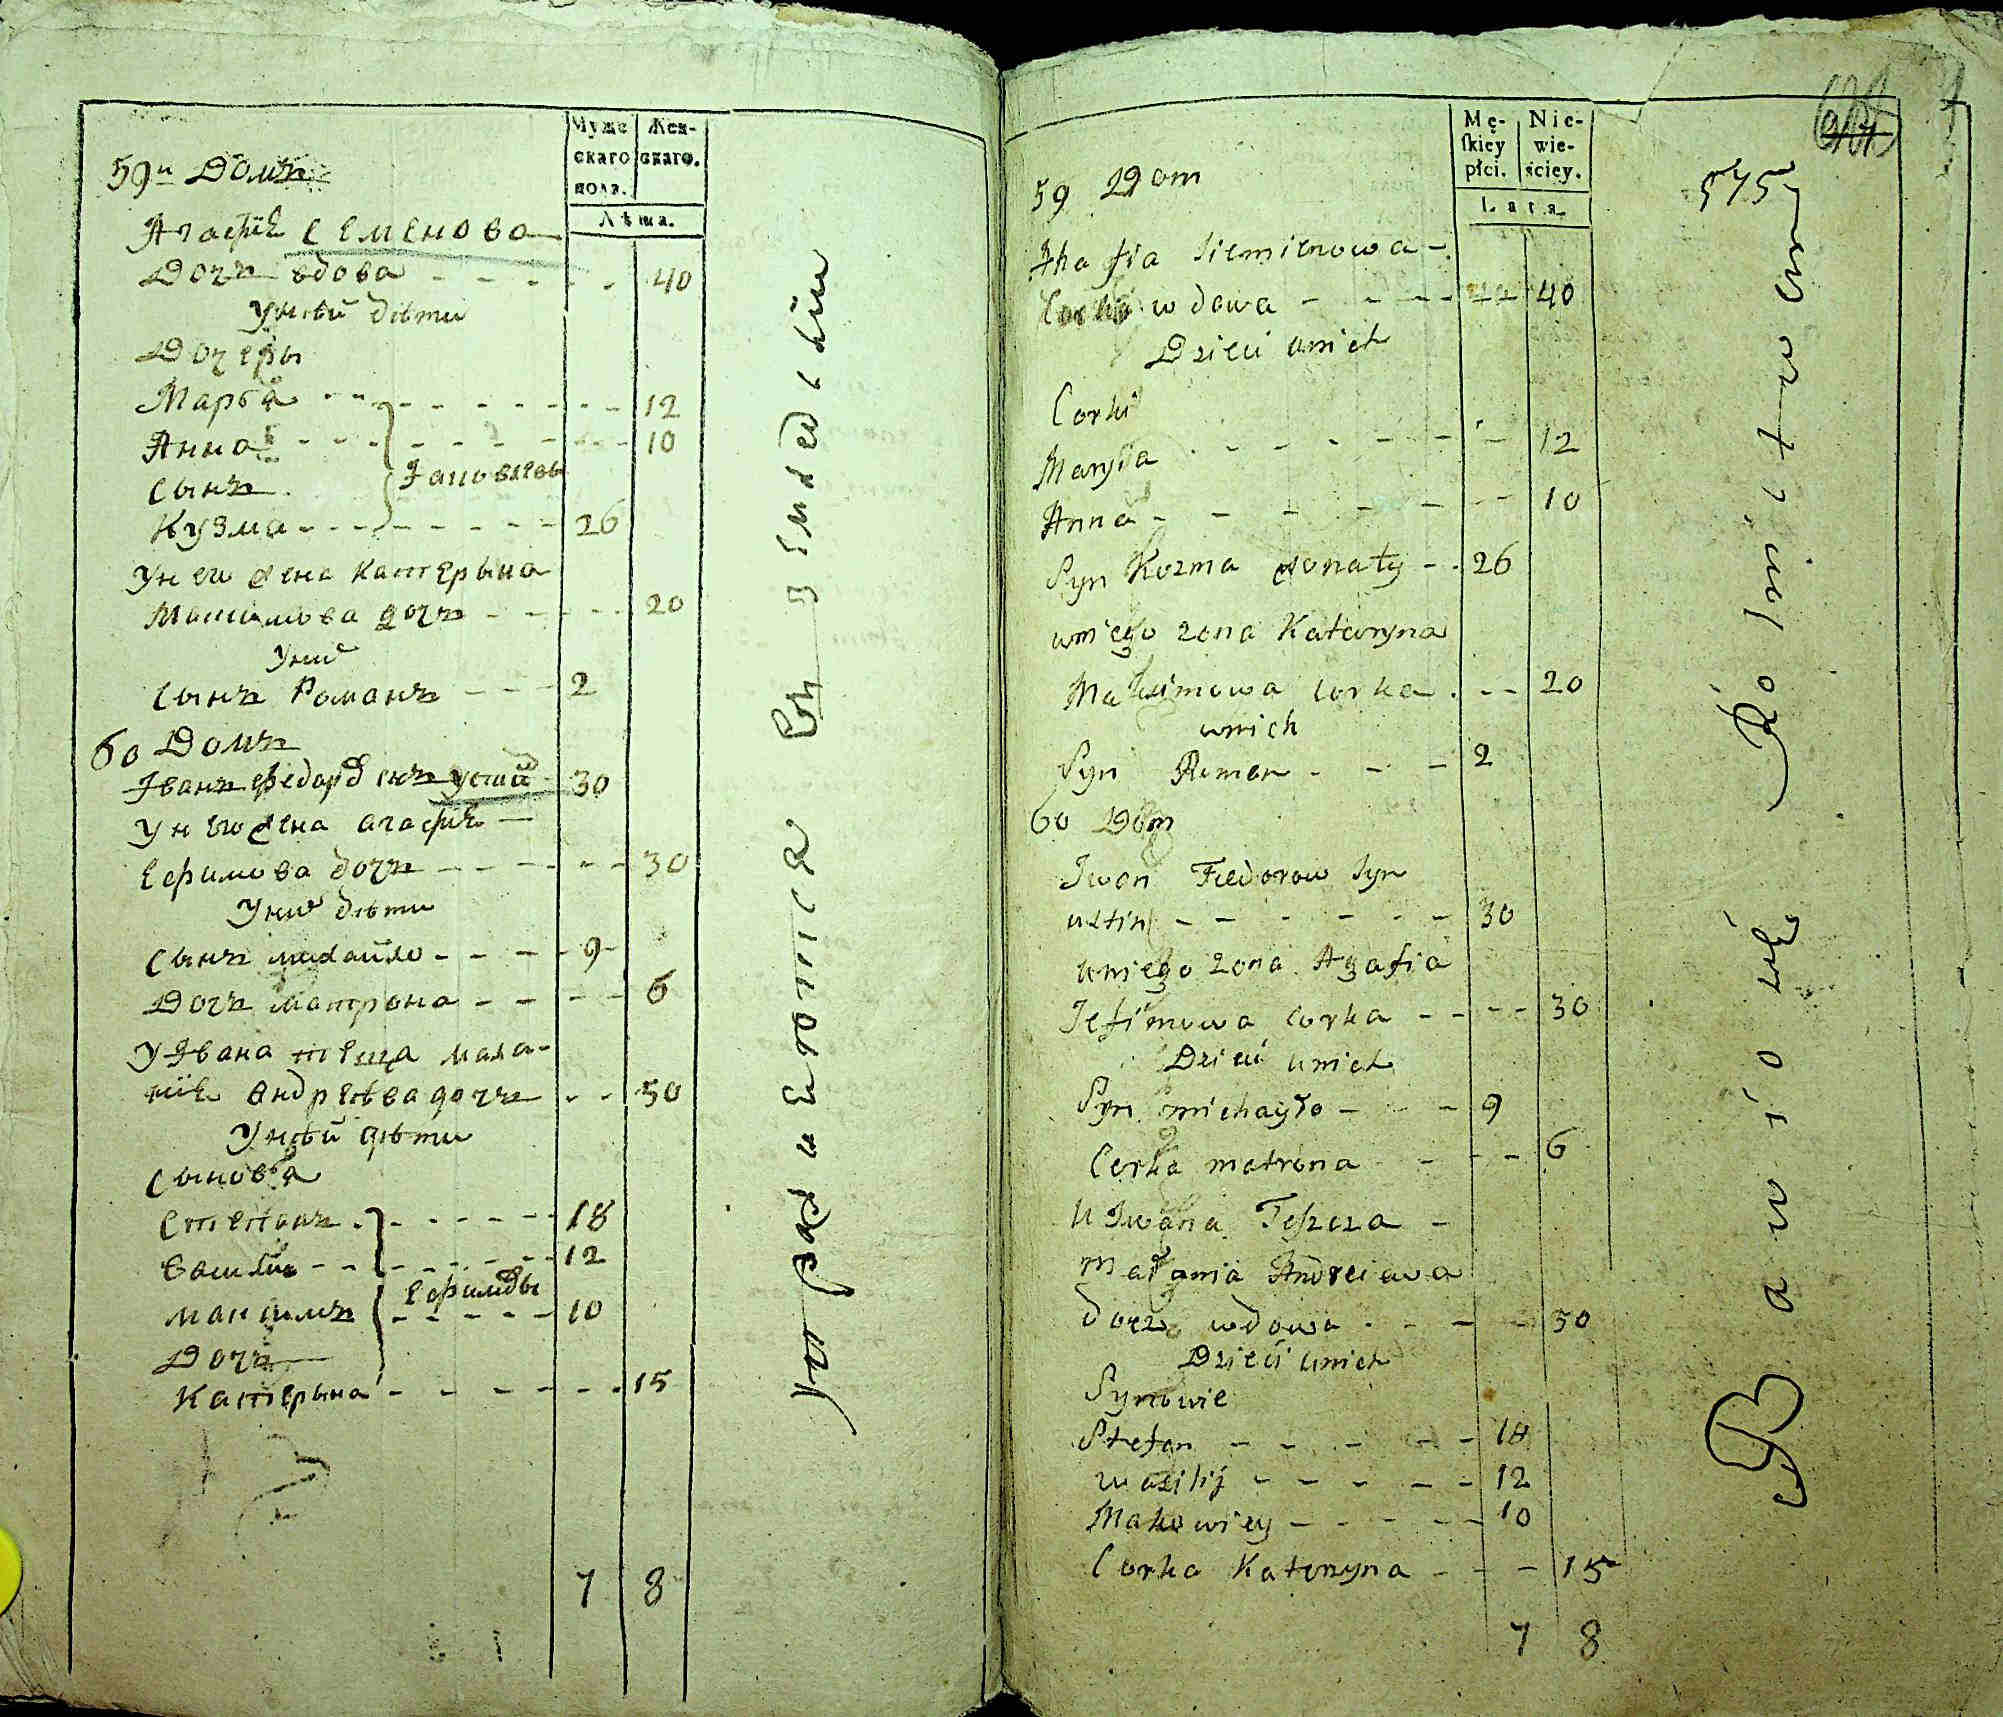 Муже
скаго
пола.
Жен-
скаго.
Лѣта.
59й Домъ
Агафіѣ Семенова
Дочь вдова - - - - - 40
Унѣй дѣти
Дочеры
Марѳа - - - - - - 12
Анна - - - - - - 10
Сынъ
Кузма - - - - - - 26
Унего жена Катерына
Максимова дочь - - - - 20
Унихъ
Сынъ Романъ - - - 2
60 Домъ
Іванъ Федоровъ снъ 30
Унего жена агафіѣ -
Ефимова дочь - - - - - 30
Унихъ дѣти
Сынъ михайло - - - - 9
Дочь матрона - - - - 6
У Ивана теща мала-
ніѣ Андреѣва дочь - - 50
Унѣй дѣти
Сыновѣ
Степанъ - - - - - 18
Василій - - - - - - 12
Ефимовы
Максимъ - - - - - 10
Дочь
Катерына - - - - - - 15
7 8
упражняются въ земледѣліи
Mę-
skiey
płci.
Nie-
wie-
ściey.
Lata
575
59 Dom
Ahafia Siemienowa -
Corka wdowa - - - - 40
Dzieci unich
Corki
Marysia - - - - - - 12
Anna - - - - - - - 10
Syn Kozma - - 26
uniego zona Kateryna
Maksimowa corka - - - 20
unich
Syn Roman - - - 2
60 Dom
Iwan Fiedorow Syn
ustin - - - - - - 30
uniego zona Agafia
Jefimowa corka - - - - 30
Dzieci unich
Syn michayło - - - 9
Corka matrona - - - 6
U Iwana Teszcza -
Małania Andreiewa
docz wdowa - - - - 50
Dzieci unich
Synowie
Stefan - - - - - 18
wasilij - - - - - 12
- - - - - 10
Corka Katerzyna - - - 15
7 8
Bawią się Rolnictwem